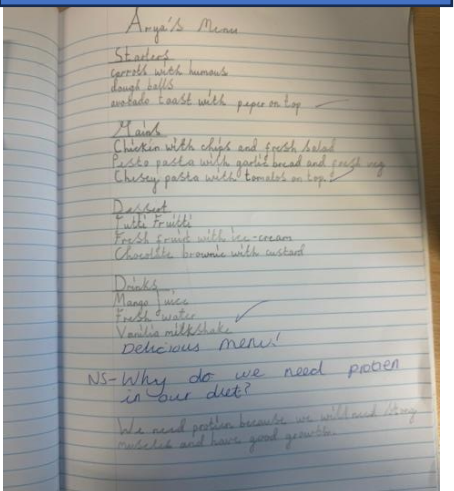 Anya's Menu
Starters
carrots with humous
dough balls
avocado toast with peper on top
Mains
Chickin with chips and fresh salad
Pesto pasta with garlic bread and fresh veg
Cheesy pasta with tomatos on top
Dessert
Tutti Fruitti
Fresh fruit with ice-cream
Chocolate brownie with custard
Drinks
Mango juice
Fresh water
Vanilia milkshake
Delicious menu!
NS- Why do we need protien
in our diet?
We need protien because we will need strong
muscles and have good growth.